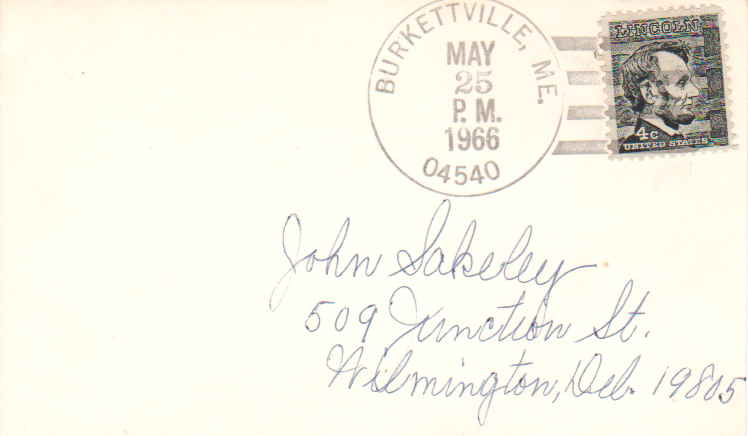 BURKETTVILLE, ME.
MAY
25
P. M.
1966
04540
LINCOLN
4c
UNITED STATES
John Sakeley
509 Junction St.
Wilmington, Del. 19805